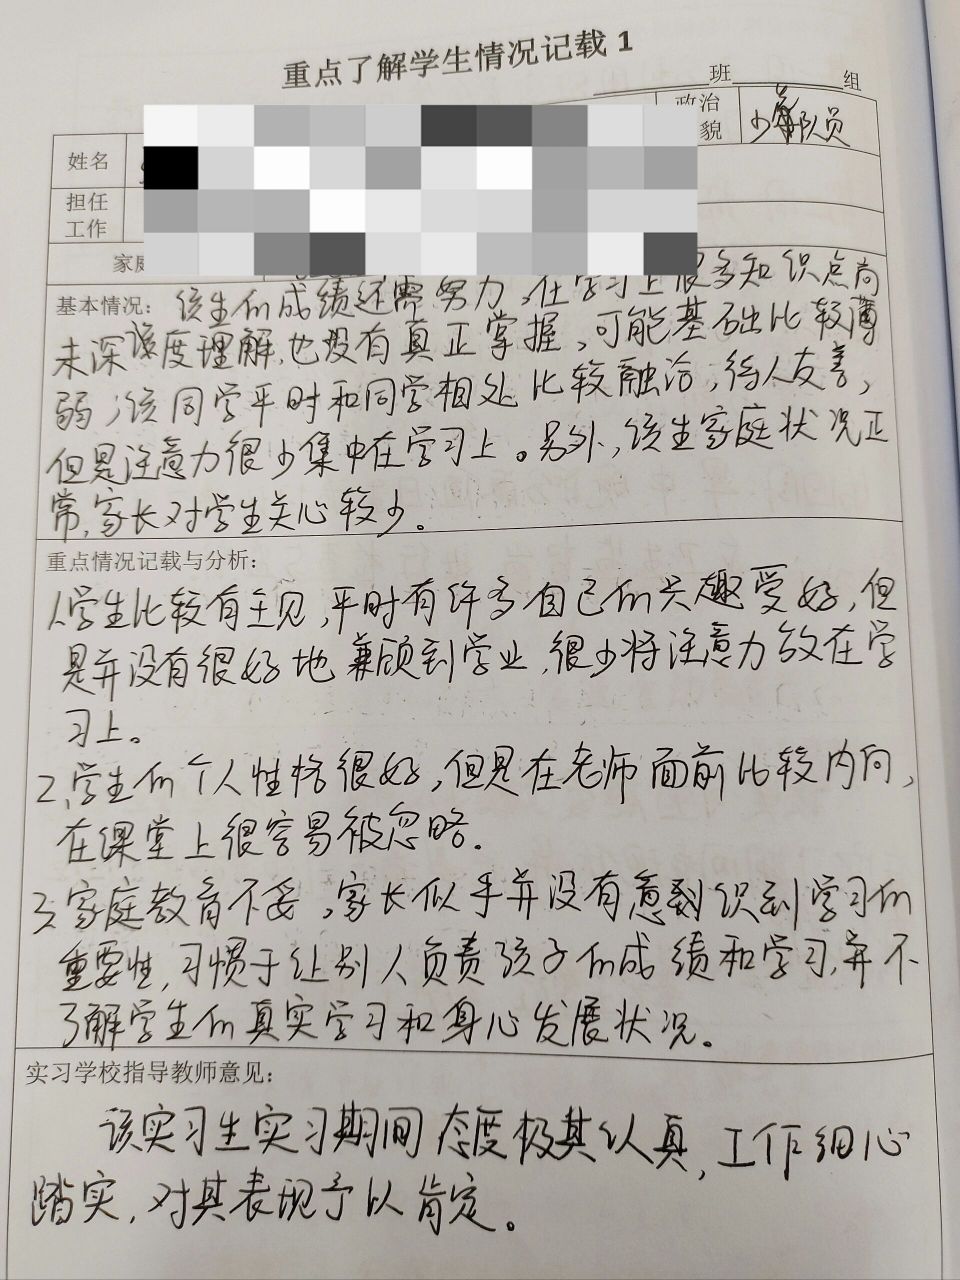 重点了解学生情况记载 1
班 组
姓名 政治 貌 少年队员
担任
工作
家庭
基本情况：该生的成绩还需努力，在学习上很多知识点尚
未深度理解，也没有真正掌握，可能基础比较薄
弱；该同学平时和同学相处比较融洽，待人友善，
但是注意力很少集中在学习上。另外，该生家庭状况正
常，家长对学生关心较少。
重点情况记载与分析：
1、学生比较有主见，平时有许多自己的兴趣爱好，但
是并没有很好地兼顾到学业，很少将注意力放在学
习上。
2、学生的个人性格很好，但是在老师面前比较内向，
在课堂上很容易被忽略。
3、家庭教育不妥，家长似乎并没有意识到学习的
重要性，习惯于让别人负责孩子的成绩和学习，并不
了解学生的真实学习和身心发展状况。
实习学校指导教师意见：
该实习生实习期间态度极其认真，工作细心
踏实，对其表现予以肯定。